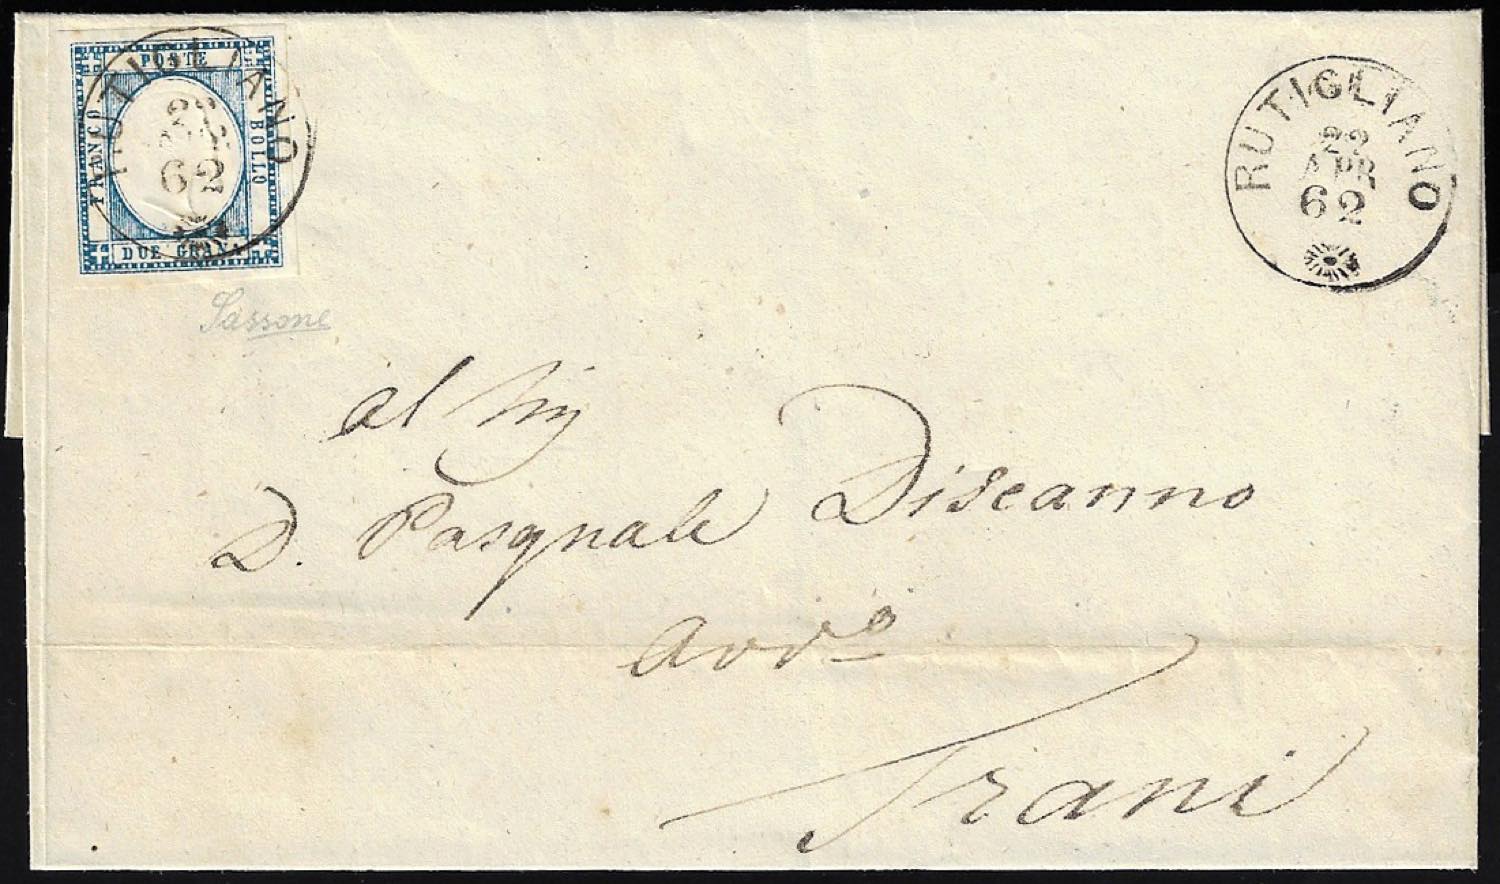 POSTE
FRANCO
BOLLO
DUE GRANA
RUTIGLIANO
22
62
RUTIGLIANO
22
APR
62
Sassone
al Sig
D. Pasquale Discanno
Avv.o
Trani